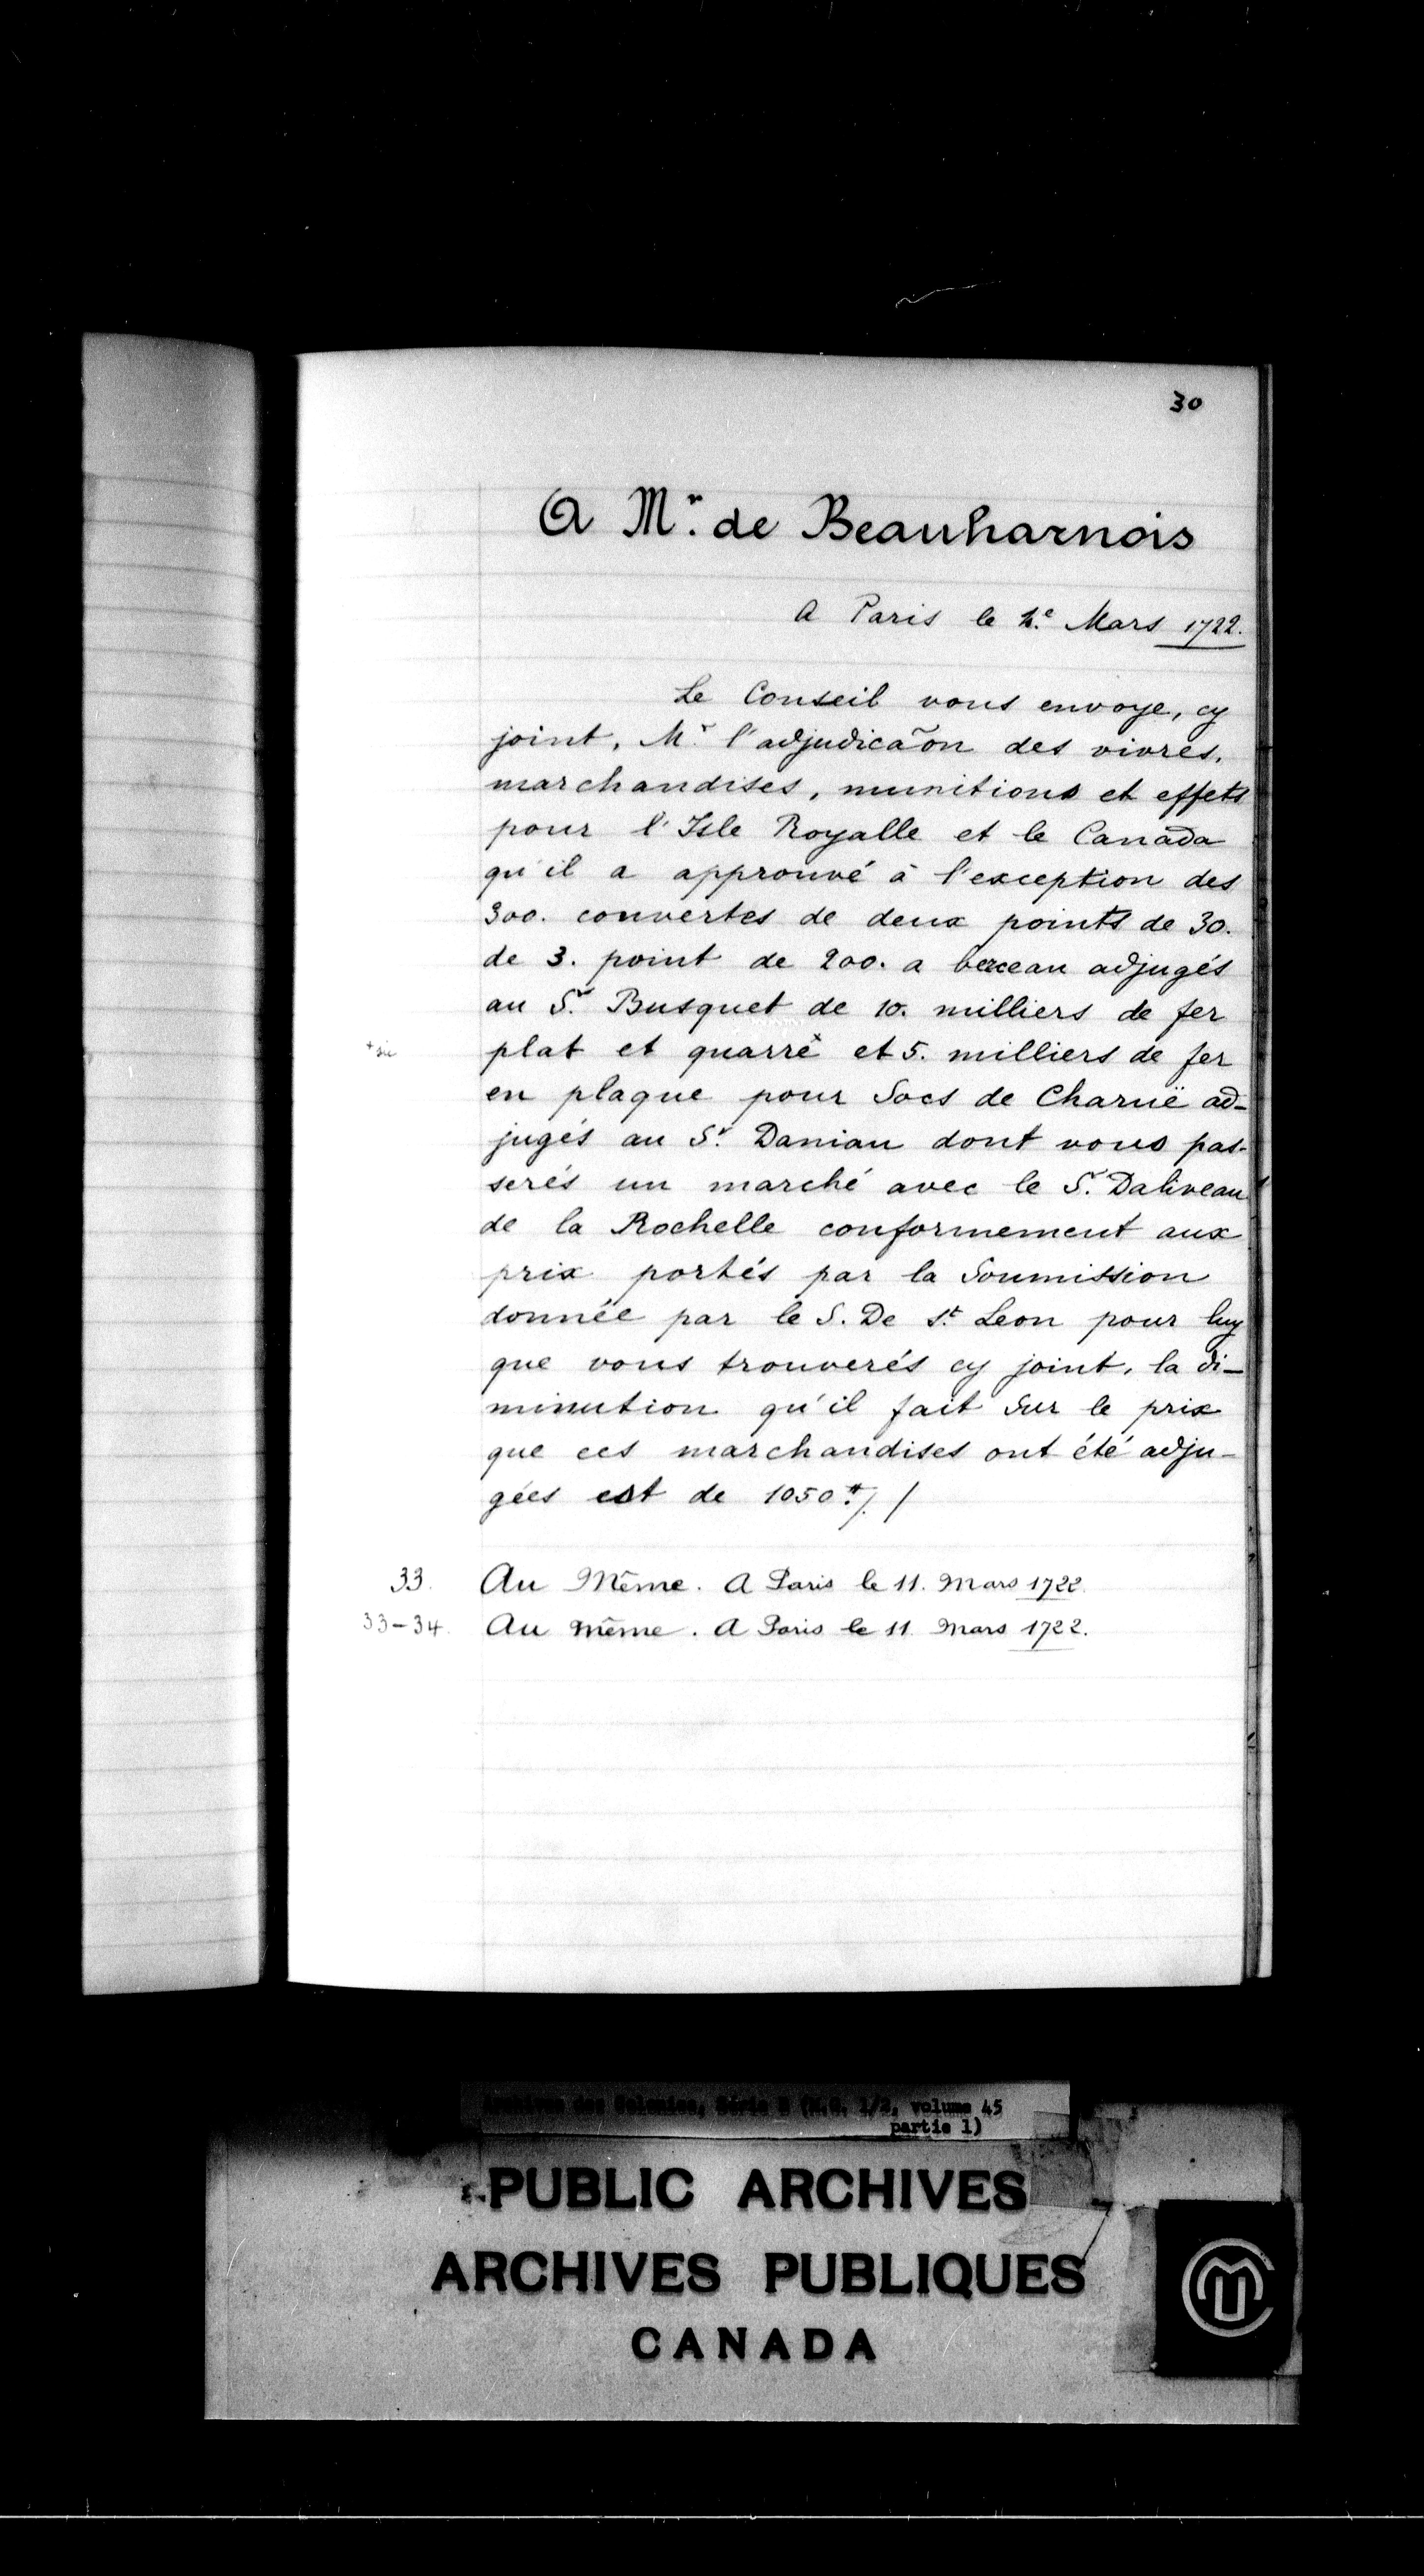 30
A Mr. de Beauharnois
A Paris le 4.e Mars 1722.
Le Conseil vous envoye, cy
joint, Mr. l'adjudicãon des vivres,
marchandises, munitions et effets
pour l'Isle Royalle et le Canada
qu'il a approuvé à l'exception des
300. couvertes de deux points de 30.
de 3. point de 200. a berceau adjugés
au Sr. Busquet de 10. milliers de fer
+ sic plat et quarré+ et 5. milliers de fer
en plaque pour Socs de Charuë ad-
jugés au Sr. Daniau dont vous pas-
serés un marché avec le Sr. Daliveau
de la Rochelle conformement aux
prix portés par la Soumission
donnée par le S. De St. Leon pour luy
que vous trouverés cy joint, la di-
minution qu'il fait Sur le prix
que ces marchandises ont été adju-
gées est de 1050 ₶./. /
33. Au Même. A Paris le 11. Mars 1722.
33-34. Au même. A Paris le 11 Mars 1722.
Archives des Colonies, Série B (M.G. 1/2, volume 45
partie 1)
PUBLIC ARCHIVES
ARCHIVES PUBLIQUES
CANADA